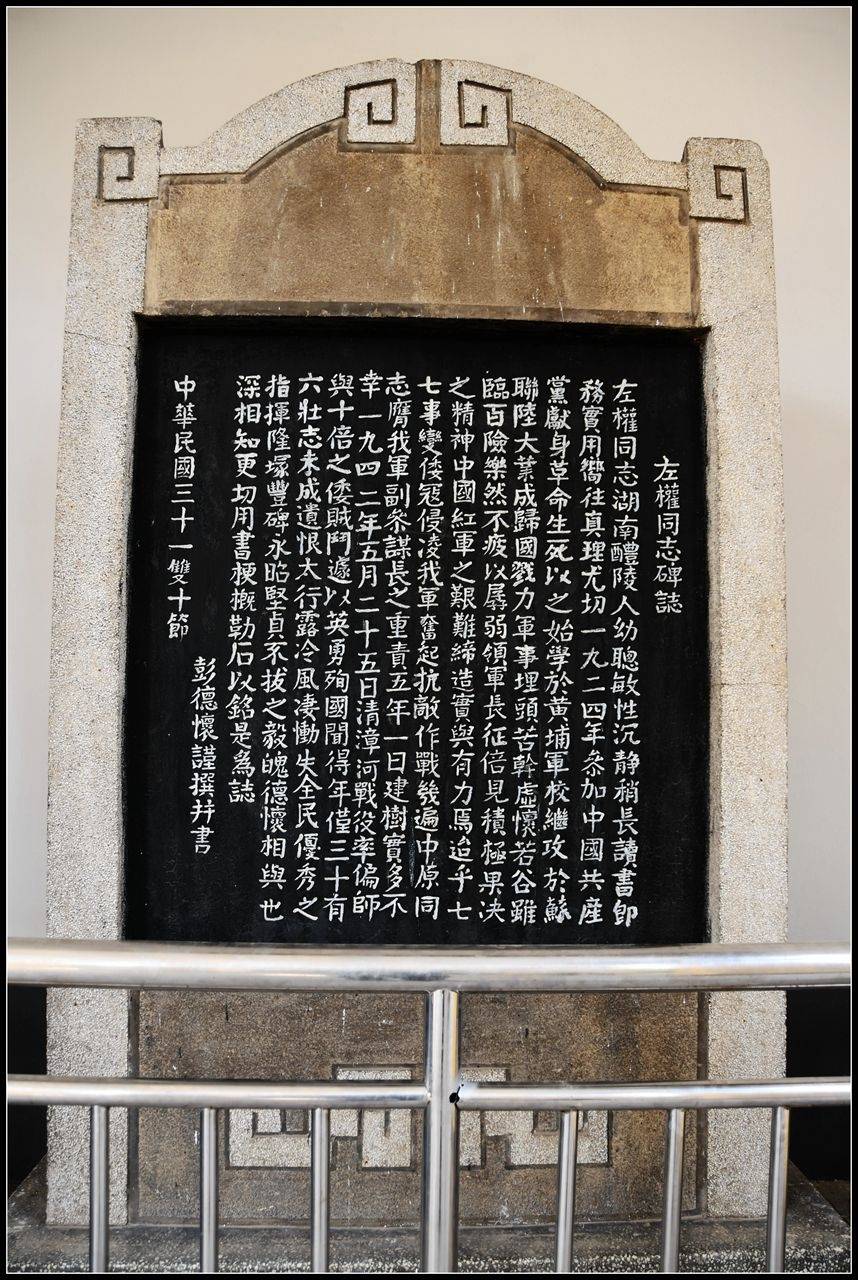 左權同志碑誌
左權同志湖南醴陵人幼聰敏性沉靜稍長讀書卽
務實用嚮往真理尤切一九二四年參加中國共産
黨獻身革命生死以之始學於黃埔軍校繼攻於蘇
聯陸大業成歸國戮力軍事埋頭苦幹虛懷若谷雖
臨百險樂然不疲以孱弱領軍長征倍見積極果決
之精神中國紅軍之艱難締造實與有力焉迨乎七
七事變倭寇侵凌我軍奮起抗敵作戰幾遍中原同
志膺我軍副參謀長之重責五年一日建樹實多不
幸一九四二年五月二十五日清漳河戰役率偏師
與十倍之倭賊鬥遽以英勇殉國聞得年僅三十有
六壯志未成遺恨太行露冷風凄慟失全民優秀之
指揮隆塚豐碑永昭堅貞不拔之毅魄德懷相與也
深相知更切用書梗概勒石以銘是為誌
彭德懷謹撰并書
中華民國三十一雙十節